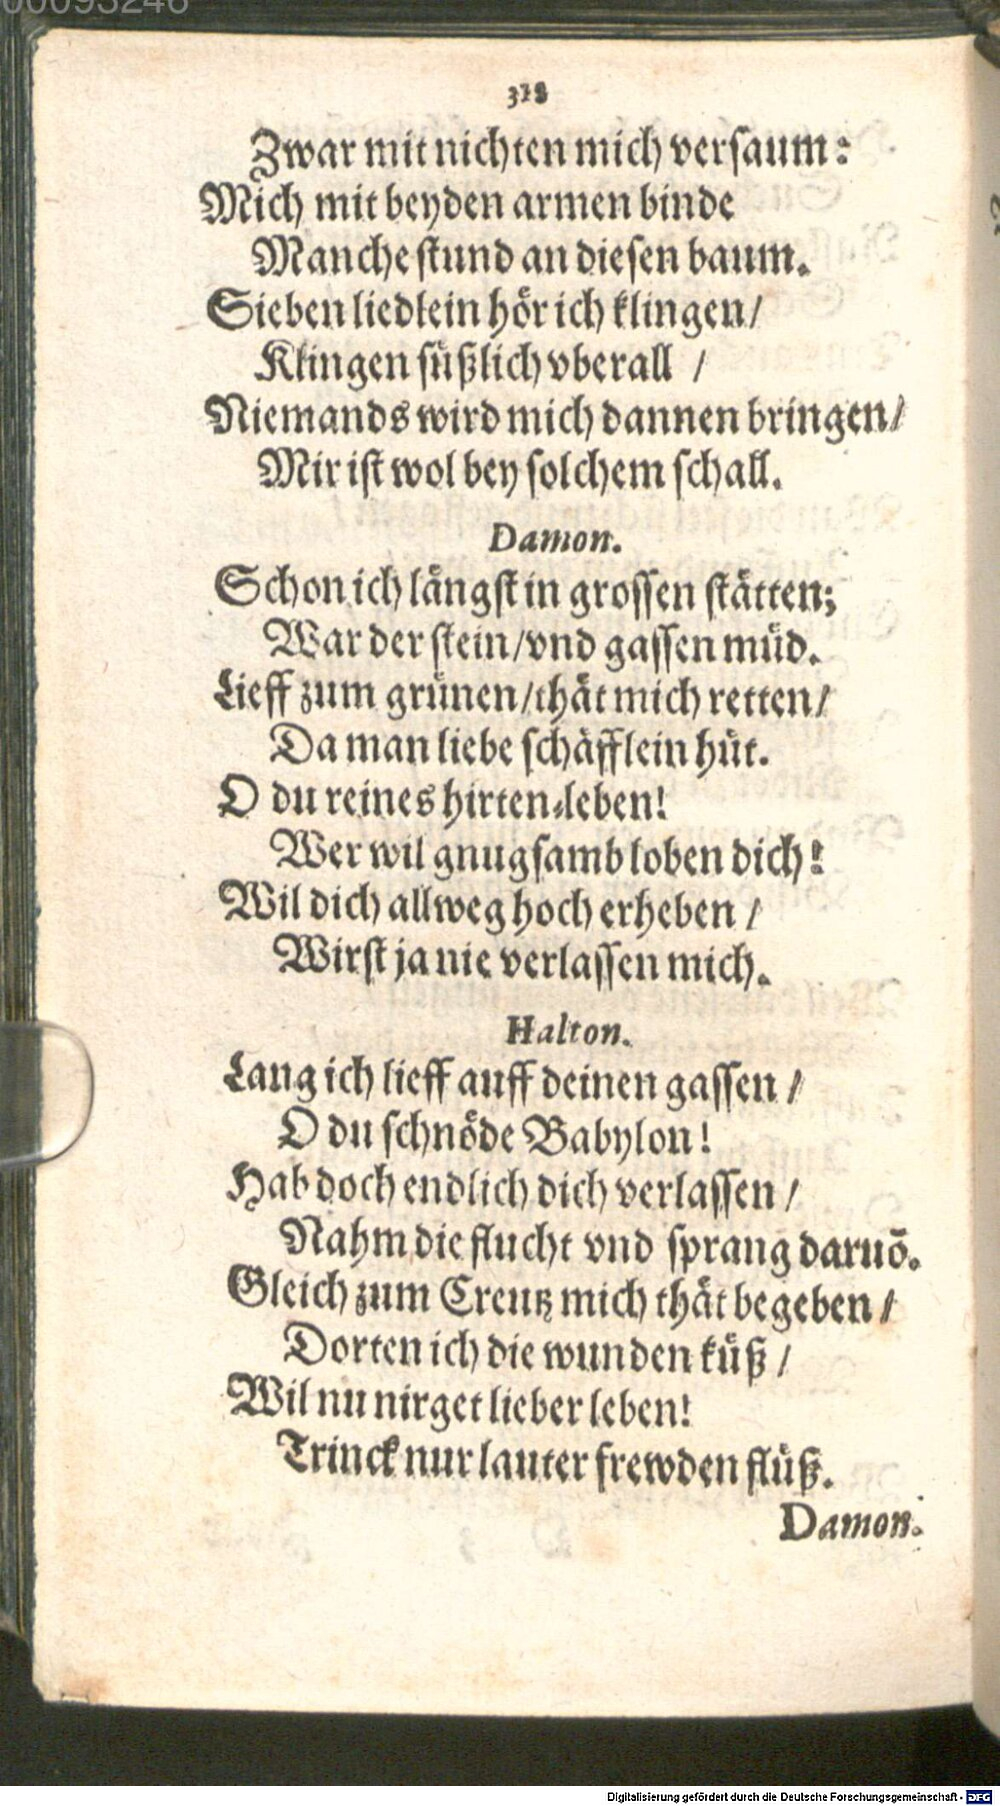 00095246
318
Zwar mit nichten mich versaum:
Mich mit beyden armen binde
Manche stund an diesen baum.
Sieben liedlein hör ich klingen/
Klingen süßlich vberall /
Niemands wird mich dannen bringen/
Mir ist wol bey solchem schall.
Damon.
Schon ich längst in grossen stätten;
War der stein/vnd gassen müd.
Lieff zum grünen/thät mich retten/
Da man liebe schäfflein hüt.
O du reines hirten-leben!
Wer wil gnugsamb loben dich!
Wil dich allweg hoch erheben /
Wirst ja nie verlassen mich.
Halton.
Lang ich lieff auff deinen gassen /
O du schnöde Babylon!
Hab doch endlich dich verlassen /
Nahm die flucht vnd sprang daruõ.
Gleich zum Creutz mich thät begeben /
Dorten ich die wunden küß /
Wil nu nirget lieber leben!
Trinck nur lauter frewden flüß.
Damon.
Digitalisierung gefördert durch die Deutsche Forschungsgemeinschaft - DFG